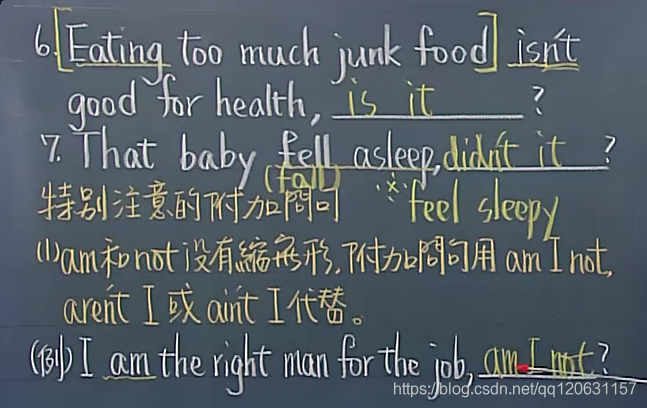 6. [Eating too much junk food] isn't
good for health, is it ?
7. That baby fell asleep, didn't it ?
(fall)
※ feel sleepy
特別注意的附加問句
(1) am和not没有縮寫形,附加問句用 am I not,
aren't I 或 ain't I 代替。
(例) I am the right man for the job, am I not?
https://blog.csdn.net/qq120631157